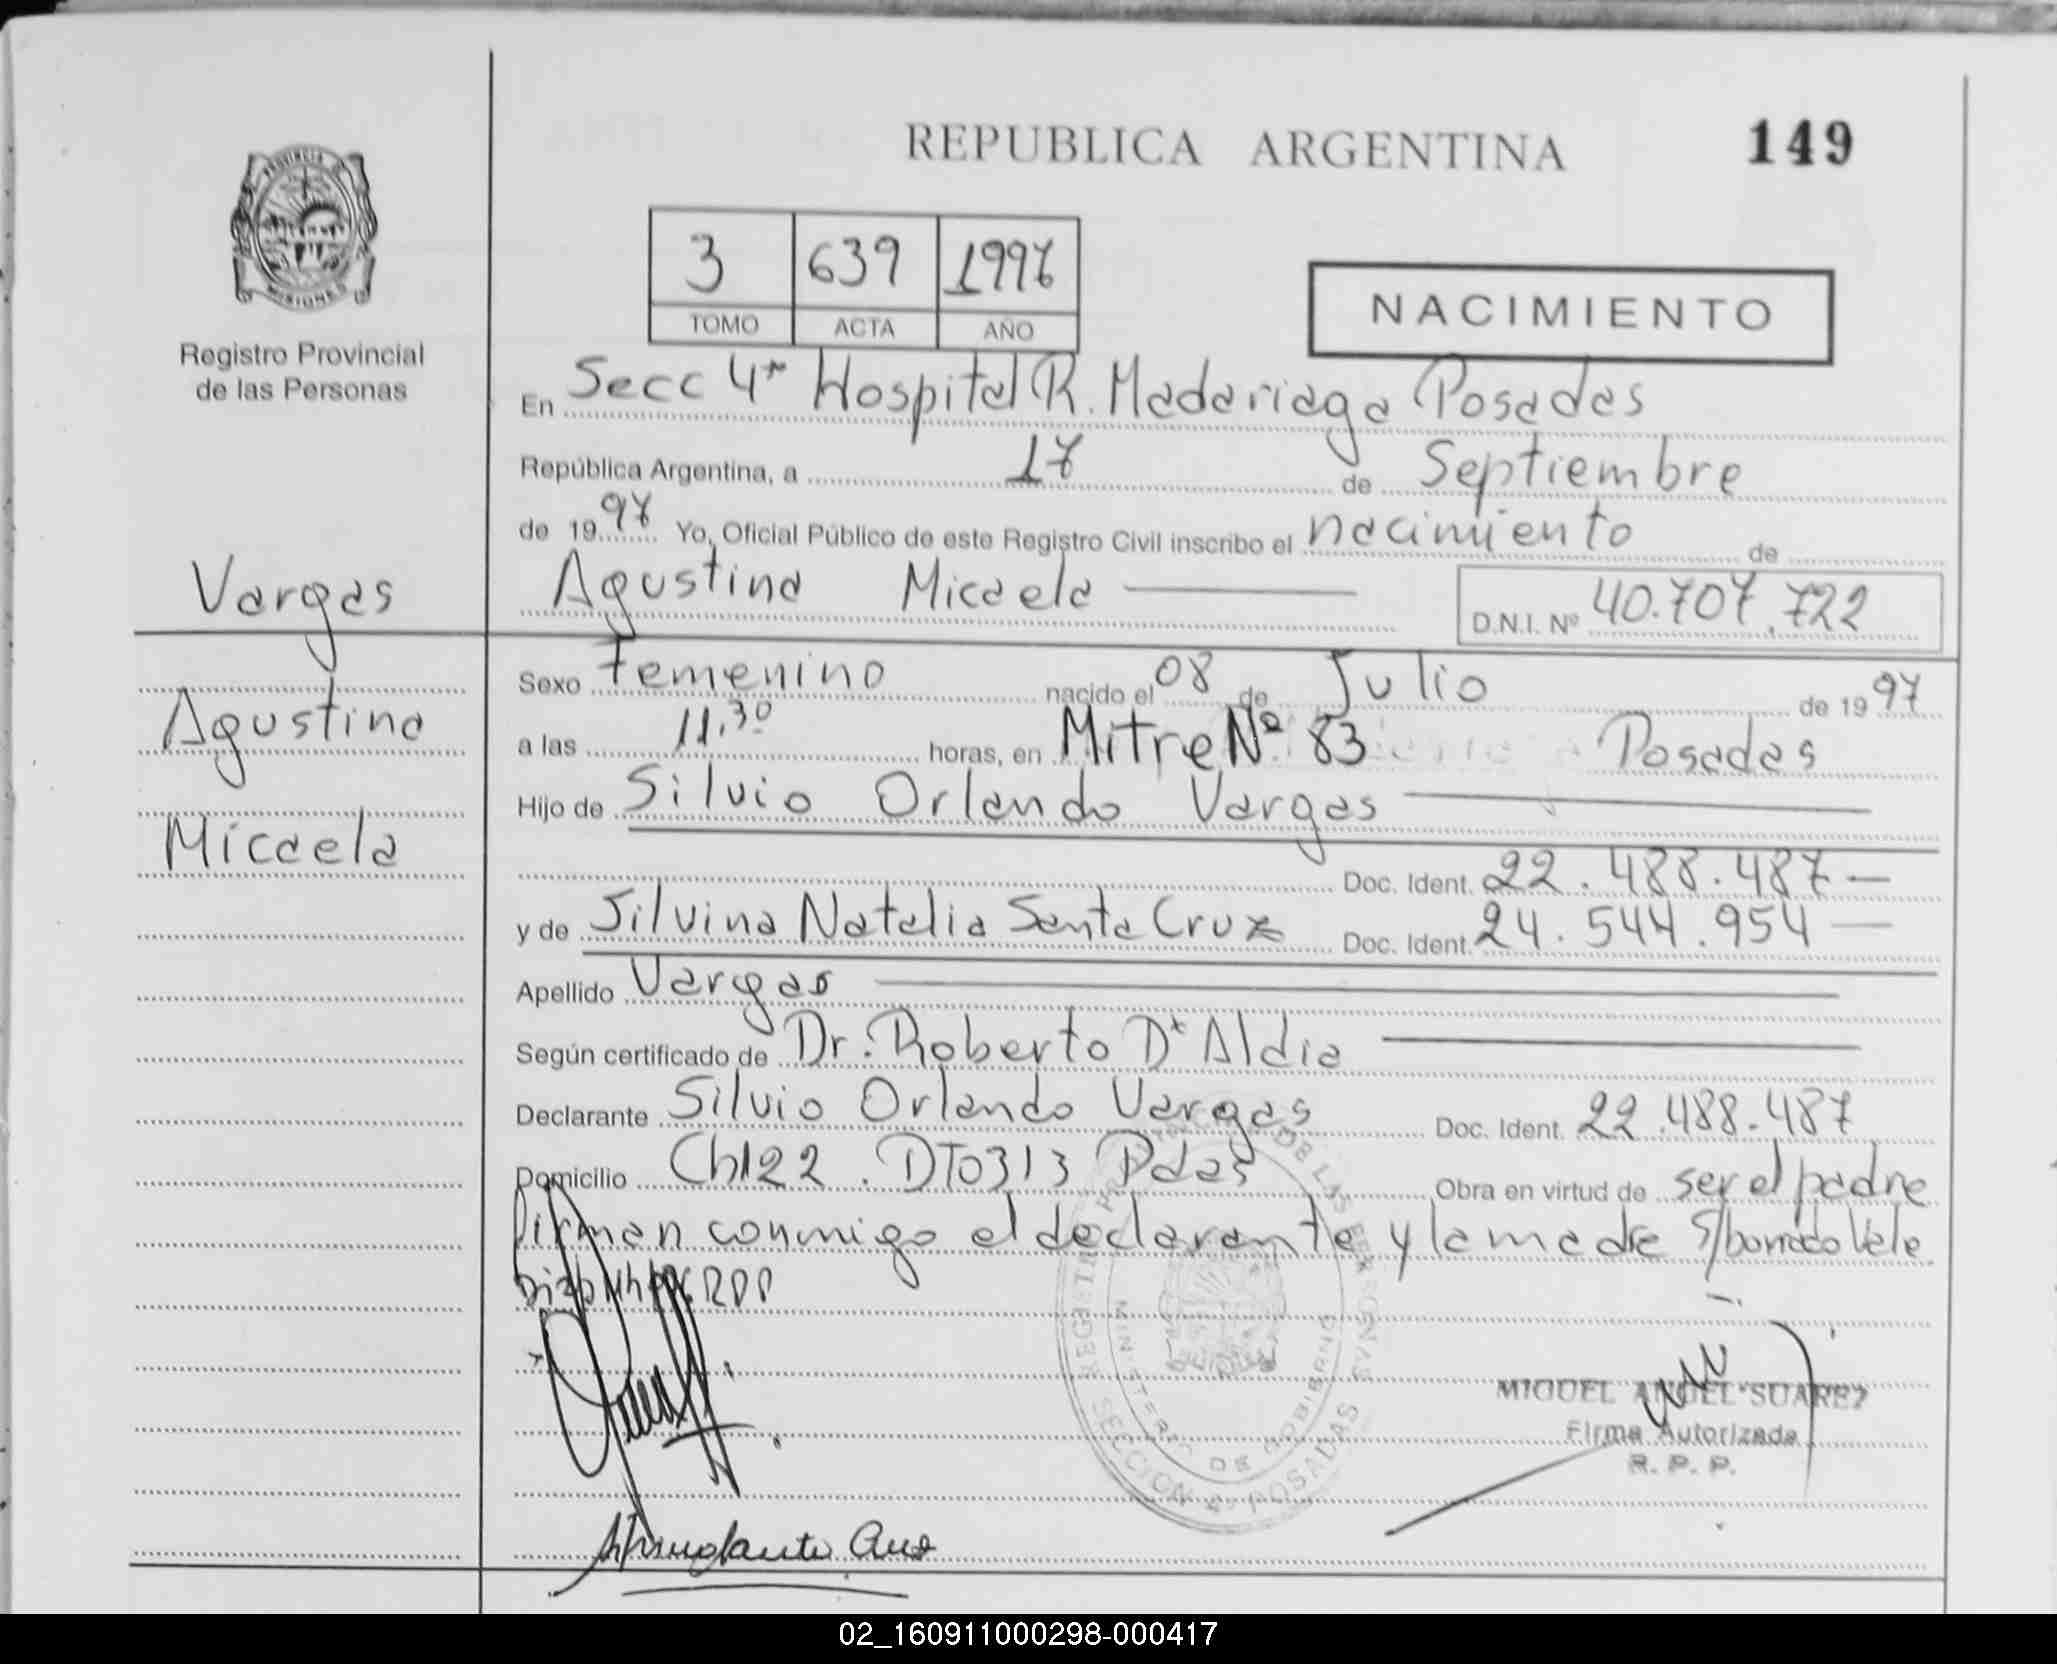 REPUBLICA ARGENTINA 149
PROVINCIA DE MISIONES
3 639 1997
TOMO ACTA AÑO
NACIMIENTO
Registro Provincial
de las Personas
En Secc 4ta Hospital R. Madariaga Posadas
República Argentina, a 17 de Septiembre
de 1997 Yo, Oficial Público de este Registro Civil inscribo el nacimiento de
Agustina Micaela
D.N.I. Nº 40.707.722
Vargas
Agustina
Micaela
Sexo Femenino nacido el 08 de Julio de 1997
a las 11,30 horas, en Mitre Nº 83 Posadas
Hijo de Silvio Orlando Vargas
Doc. Ident. 22.488.487—
y de Silvina Natalia Santa Cruz Doc. Ident. 24.544.954—
Apellido Vargas
Según certificado de Dr. Roberto D'Aldia
Declarante Silvio Orlando Vargas Doc. Ident. 22.488.487
Domicilio Ch122. DTO313 Pdas Obra en virtud de ser el padre
Firman conmigo el declarante y la madre S/borrado Vale
REGISTRO PROVINCIAL DE LAS PERSONAS
MINISTERIO DE GOBIERNO
SECCION 4ª POSADAS
MIGUEL ANGEL SUAREZ
Firma Autorizada
R. P. P.
02_160911000298-000417